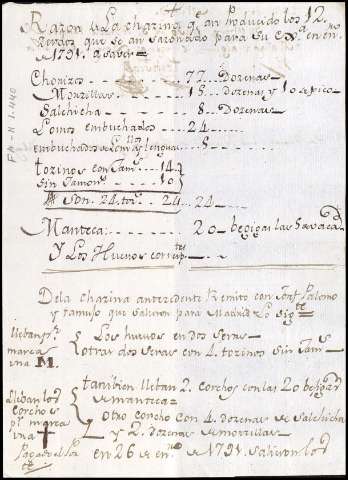 Razon de La chazina qe an Producido los 12.
Zerdos que se an sazonado para su Exa. en en.o
de 1791. a saver =
Chorizos - - - - - - - 77. Dozenas
Morzillas - - - - - 15. dozenas y 10 de pico
Salchicha - - - - - - 8. Dozenas
Lomos embuchados - - 24 - - -
embuchados de Lom.s y lengua - - 8 - -
tozinos con Jam.s - - 14
sin Jamon.s - - - 10
Son. 24. toz.s - - 24 - - 24 - -
Manteca: - - - - - - 20 - begigas
Y Los Huesos
De la chazina antecedente Remito con Palomo
y que salieron para Madrid Lo sig.te
lleban p.r marca una M.
Los huesos en dos Seras
otras dos seras con 4. tozinos sin Jam.s
lleban los corchos p.r marca una †
tambien lleban 2. corchos con las 20 beg.s
de manteca =
otro concho con 4. dozenas de salchicha
y 2. Dozenas de morzillas
en 26 de en.o de 1791. salieron los
FA-N.1.440